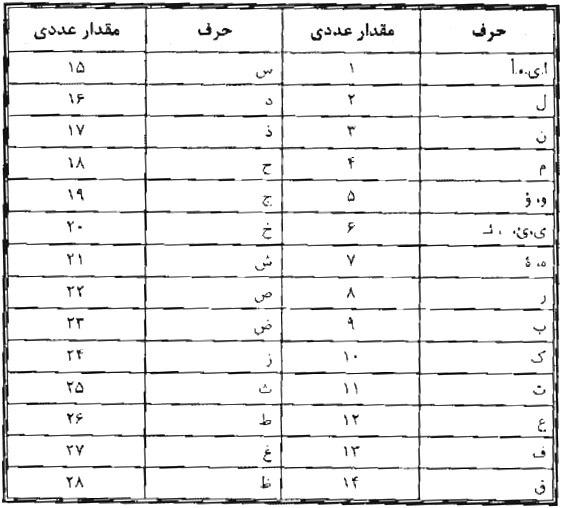 حرف مقدار عددی حرف مقدار عددی
ا،ی،ء،أ ۱ س ۱۵
ل ۲ د ۱۶
ن ۳ ذ ۱۷
م ۴ ح ۱۸
و، ؤ ۵ ج ۱۹
ی،ئ، ، ئـ ۶ خ ۲۰
ه، ة ۷ ش ۲۱
ر ۸ ص ۲۲
ب ۹ ض ۲۳
ک ۱۰ ز ۲۴
ت ۱۱ ث ۲۵
ع ۱۲ ط ۲۶
ف ۱۳ غ ۲۷
ق ۱۴ ظ ۲۸